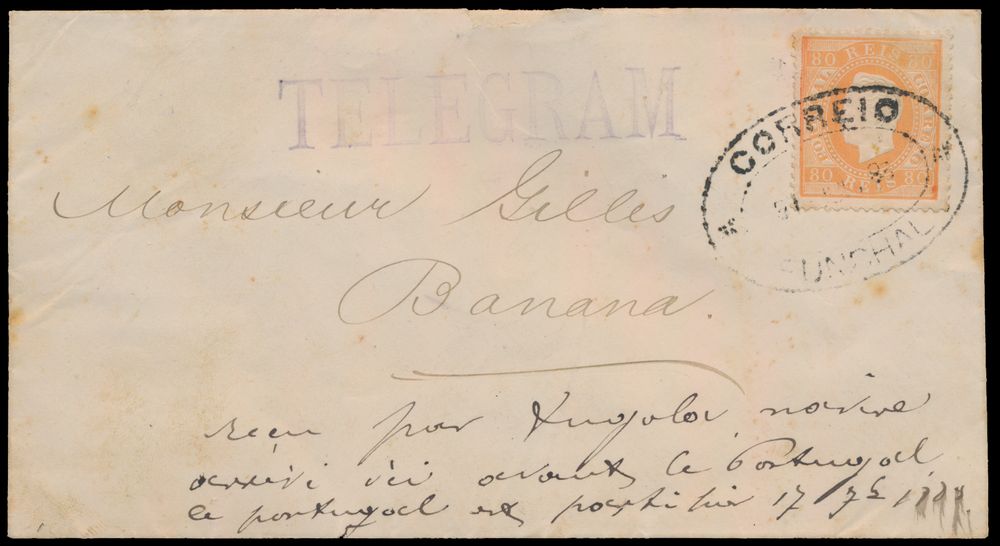 TELEGRAM
80 REIS 80
80 REIS 80
CORREIO
FUNCHAL
Monsieur Gillis
Banana.
reçu par Angola, navire
arrivé ici avant le Portugal,
le portugal est parti hier 17 7bre